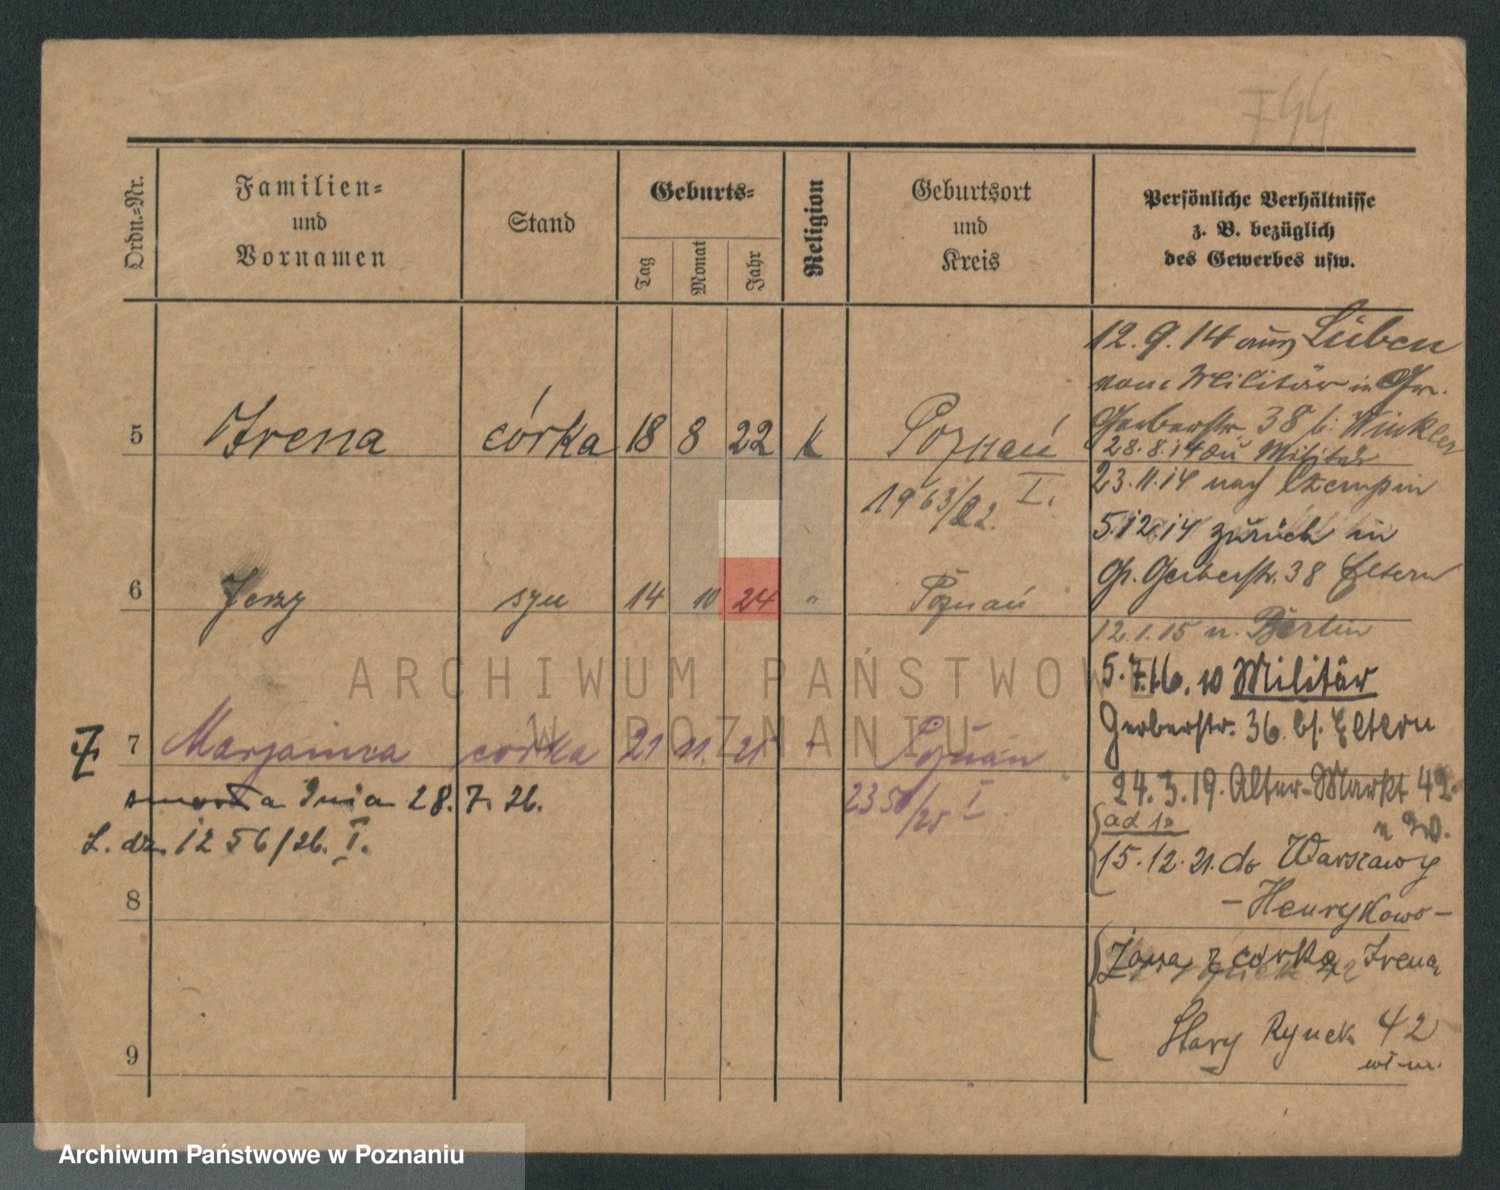 744
Ordn.-Nr.
Familien-
und
Vornamen
Stand
Geburts-
Tag
Monat
Jahr
Religion
Geburtsort
und
Kreis
Persönliche Verhältnisse
z. B. bezüglich
des Gewerbes usw.
5 Irena córka 18 8 22 k Poznań
1963/22. I.
6 Jerzy syn 14 10 24 " Poznań
7 Marjanna córka 21 11. 25 Poznań
2350/25 I
zmarła dnia 28. 7. 26.
L. dz. 1256/26. I.
8
9
12. 9. 14 aus Lüben
vom Militär in Gr.
Gerberstr. 38 b. Winkler
28. 8. 14 zu Militär
23. 11. 14 nach Czempin
5. 12. 14 zurück in
Gr. Gerberstr. 38 Eltern
12. 1. 15 n. Berlin
5. 7. 16. Militär
Gerberstr. 36 bf. Eltern
24. 3. 19. Alter-Markt 42
ad 1a
15. 12. 21. do Warszawy
- Henrykowo -
Żona z córką Ireną
Stary Rynek 42
ARCHIWUM PAŃSTWOWE
W POZNANIU
Archiwum Państwowe w Poznaniu